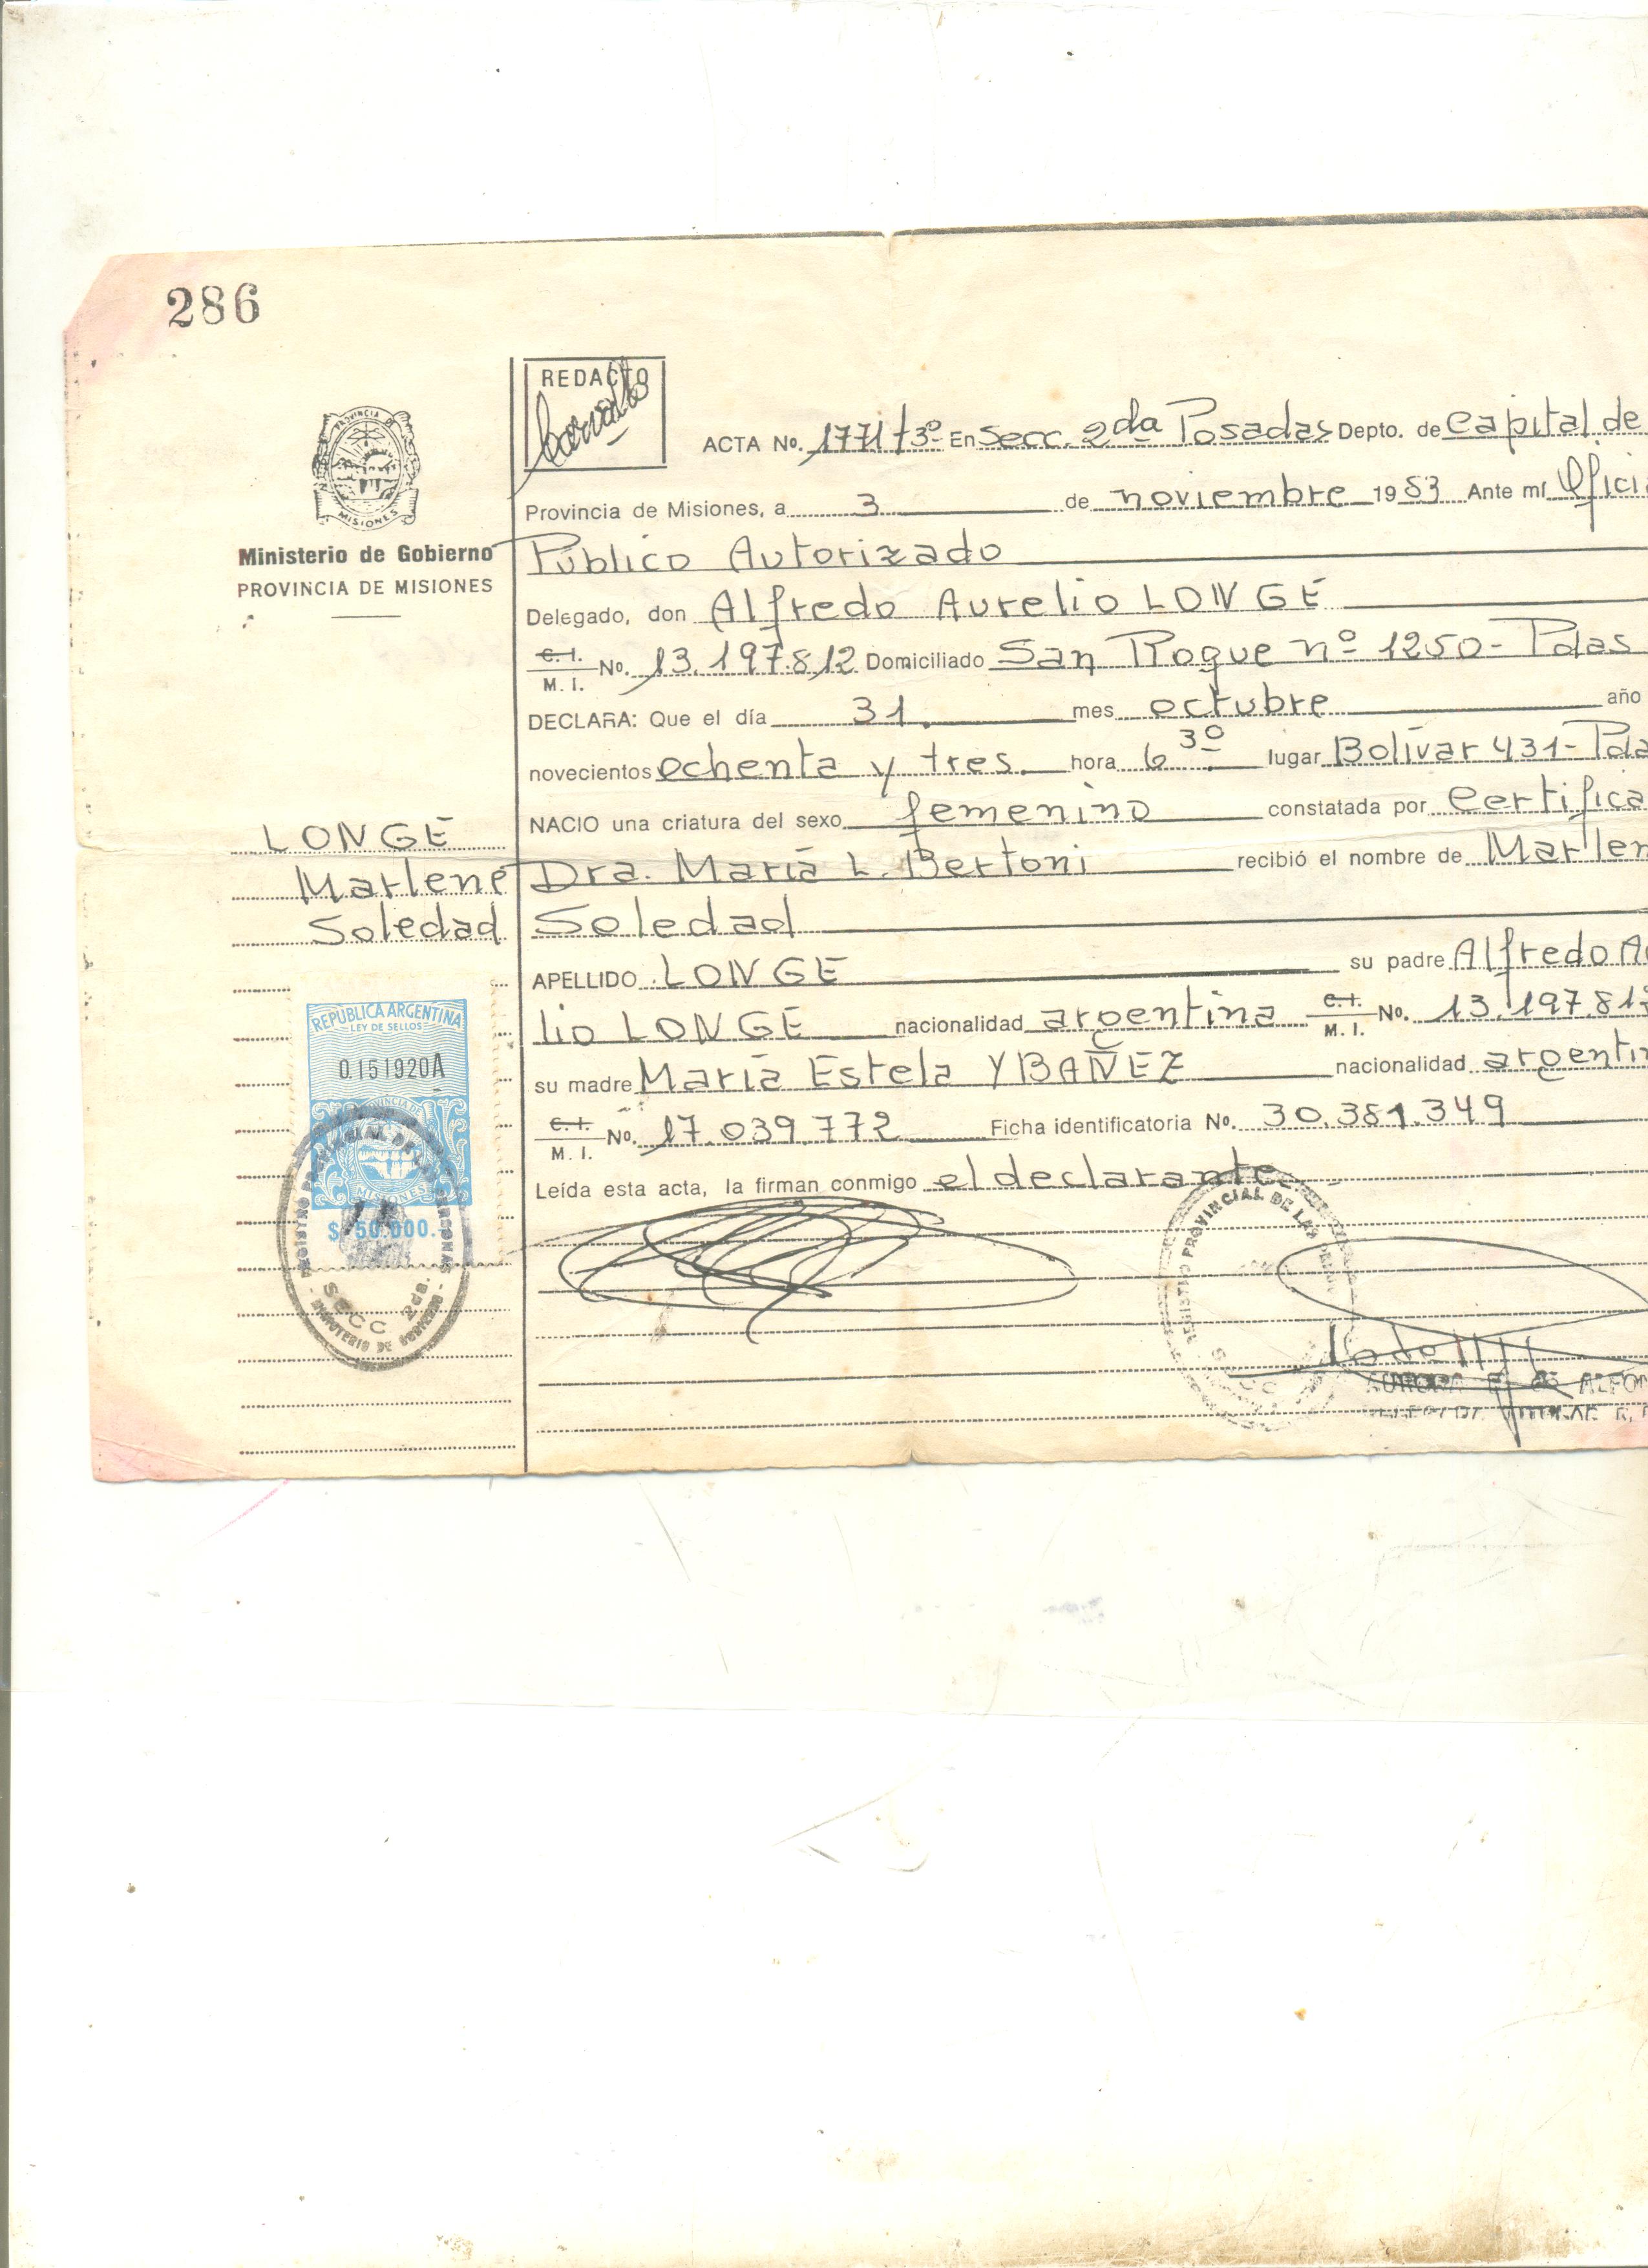 286
REDACTO
PROVINCIA DE
MISIONES
Ministerio de Gobierno
PROVINCIA DE MISIONES
ACTA No. 1771 T3º En Secc. 2da Posadas Depto. de Capital de
Provincia de Misiones, a 3 de noviembre 1983 Ante mí Ofici
Público Autorizado
Delegado, don Alfredo Aurelio LONGE
C. I. M. I. No. 13.197.812 Domiciliado San Roque nº 1250- Pdas
DECLARA: Que el día 31. mes octubre año
novecientos ochenta y tres. hora 6 30 lugar Bolívar 431- Pda
NACIO una criatura del sexo femenino constatada por Certifica
Dra. María L. Bertoni recibió el nombre de Marlen
Soledad
APELLIDO LONGE su padre Alfredo Au
lio LONGE nacionalidad argentina C. I. M. I. No. 13.197.812
su madre María Estela YBAÑEZ nacionalidad argentin
C. I. M. I. No. 17.039.772 Ficha identificatoria No. 30.381.349
Leída esta acta, la firman conmigo el declarante
LONGE
Marlene
Soledad
REPUBLICA ARGENTINA
LEY DE SELLOS
0.151920A
PROVINCIA DE
MISIONES
$ 50.000.
SECC 2da.
MINISTERIO DE GOBIERNO
REGISTRO PROVINCIAL DE LAS